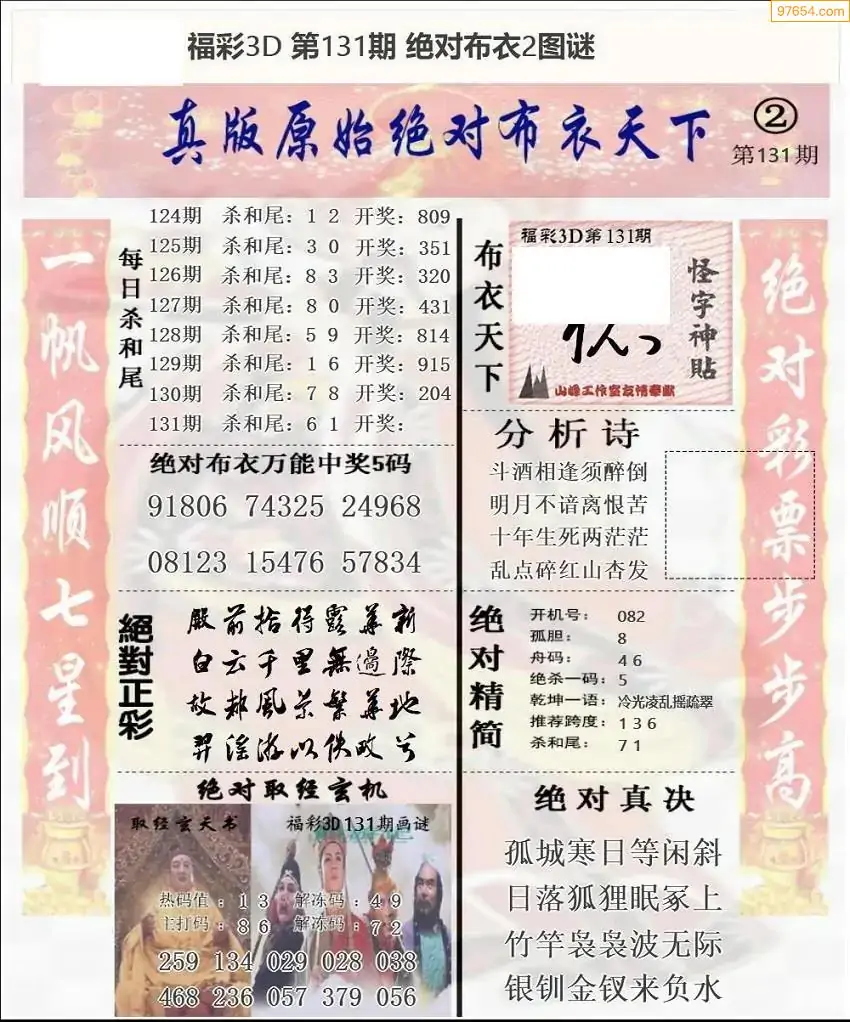 97654.com
福彩3D 第131期 绝对布衣2图谜
真版原始绝对布衣天下
②
第131期
一帆风顺七星到
每日杀和尾
124期 杀和尾：1 2 开奖：809
125期 杀和尾：3 0 开奖：351
126期 杀和尾：8 3 开奖：320
127期 杀和尾：8 0 开奖：431
128期 杀和尾：5 9 开奖：814
129期 杀和尾：1 6 开奖：915
130期 杀和尾：7 8 开奖：204
131期 杀和尾：6 1 开奖：
绝对布衣万能中奖5码
91806 74325 24968
08123 15476 57834
絕對正彩
殿前拾得露華新
白云千里無邊際
故鄉風景繁華地
羿淫游以佚畋兮
绝对取经玄机
取经玄天书
福彩3D131期画谜
热码值：1 3 解冻码：4 9
主打码：8 6 解冻码：7 2
259 134 029 028 038
468 236 057 379 056
布衣天下
福彩3D第131期
怪字神贴
山峰工作室友情奉献
分析诗
斗酒相逢须醉倒
明月不谙离恨苦
十年生死两茫茫
乱点碎红山杏发
绝对精简
开机号： 082
孤胆： 8
舟码： 4 6
绝杀一码：5
乾坤一语：冷光凌乱摇疏翠
推荐跨度：1 3 6
杀和尾： 7 1
绝对真决
孤城寒日等闲斜
日落狐狸眠冢上
竹竿袅袅波无际
银钏金钗来负水
绝对彩票步步高